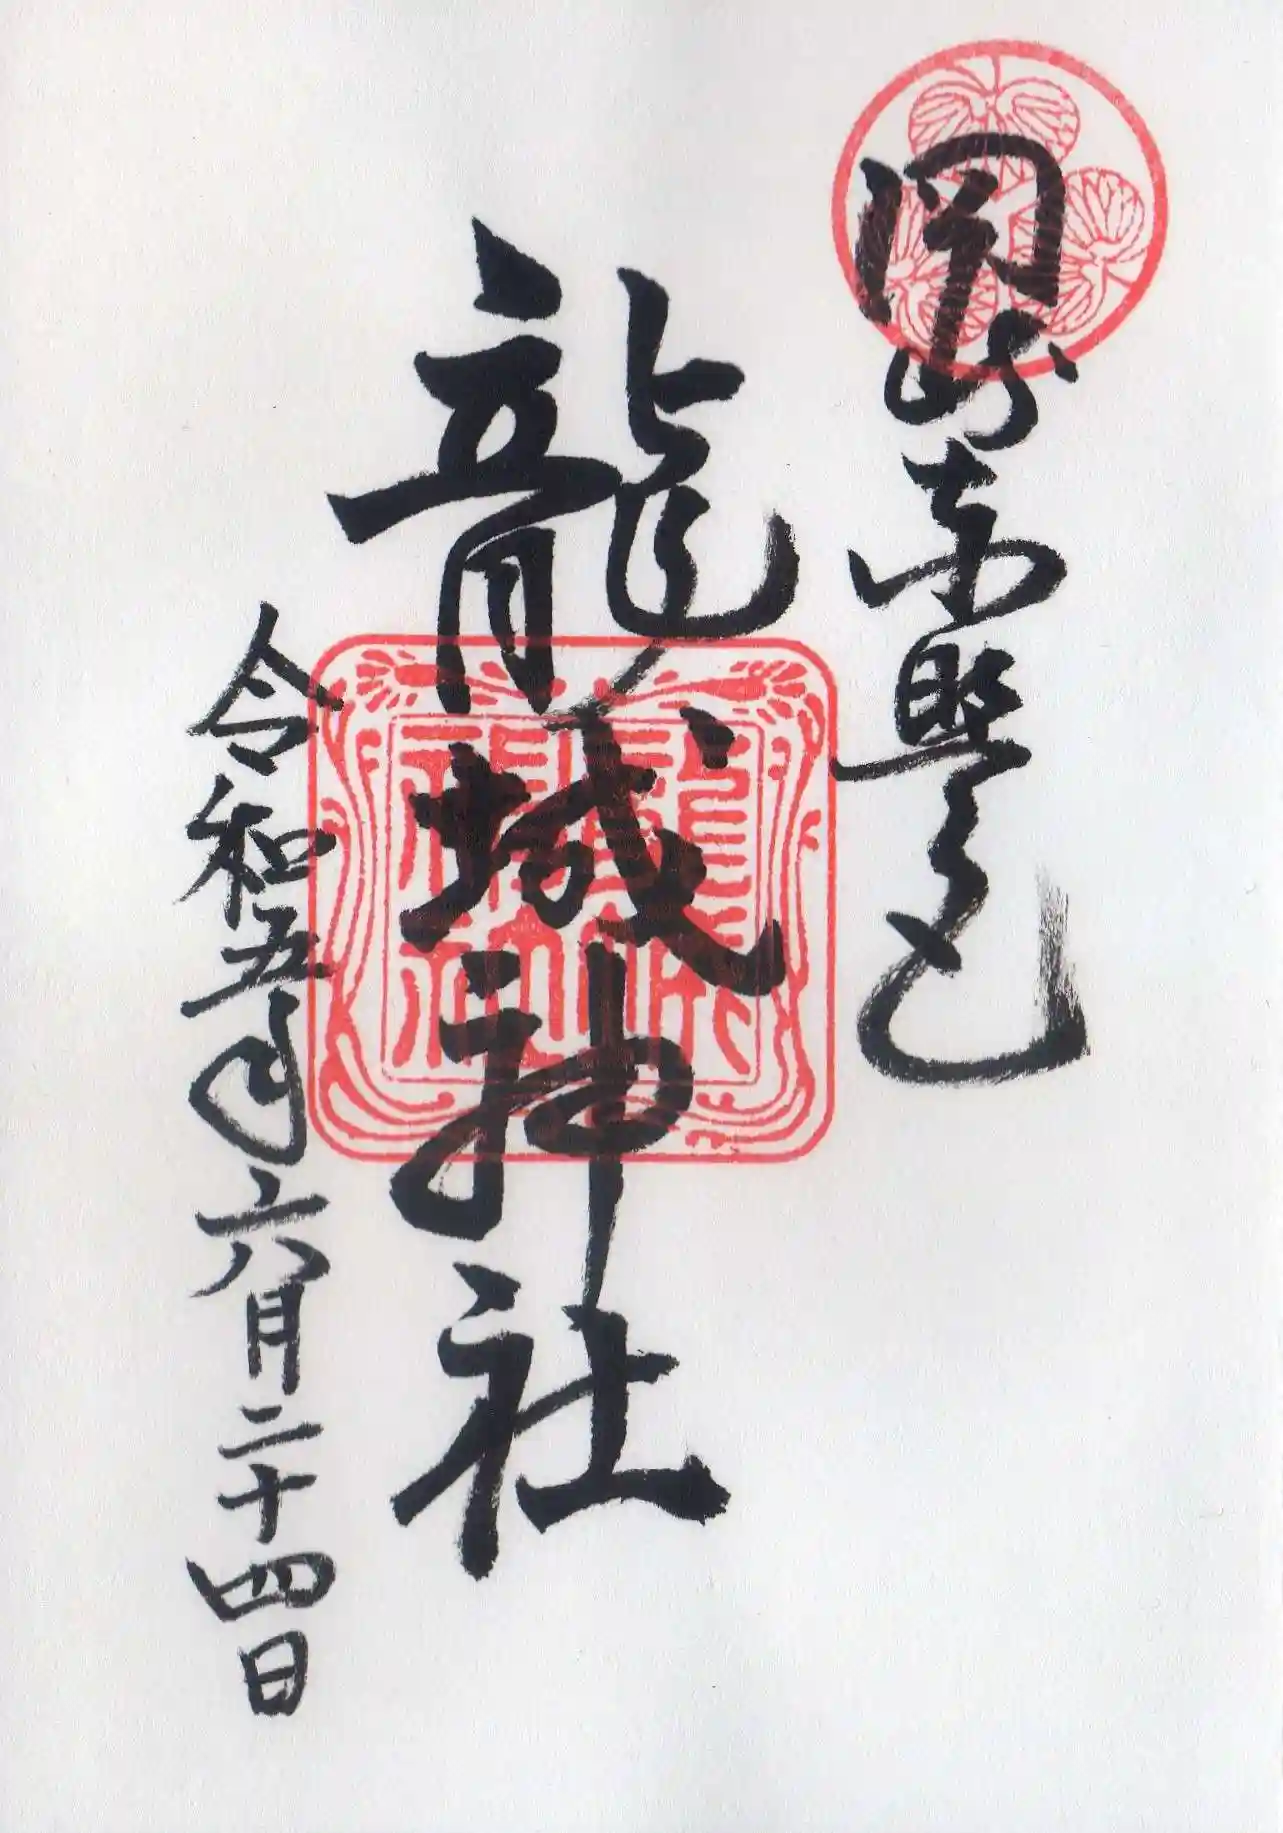 岡崎東照宮
龍城神社
令和五年六月二十四日
龍城神社